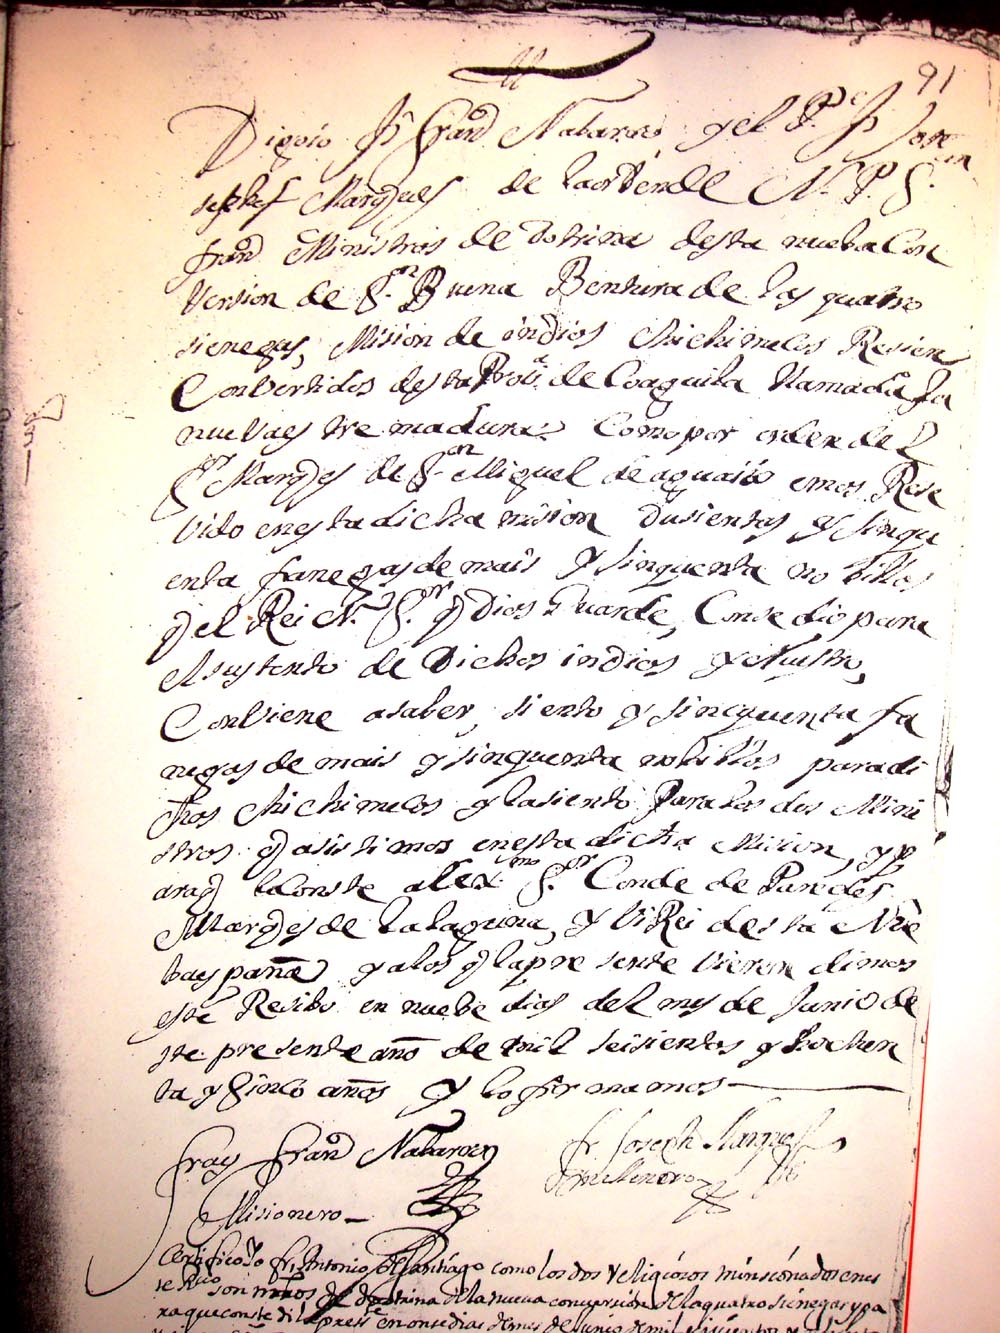 91
Digo io fr franco Nabaro y el Pe fr Jo
sephf Marques de la orden de N. P. S.
franco Ministros de dotrina desta nueba Con
Version de Sn Buena Bentura de las quatro
sienegas, Mision de indios chichimecos Resien
Conbertidos desta Prova de Coaguila llamada la
nueba estremadura. Como por orden del
Sor Marqs de Sn Miguel de aguaio emos Rese
vido en esta dicha mision dusientas y sinqu
enta fanegas de mais y sinquenta nobillos
q el Rei N. Sr q Dios Guarde, Consedio para
el sustento de Dichos indios y nuestro,
Conbiene a saber, siento y sincquenta fa
negas de mais y sinquenta nobillos para di
chos chichimecos y las siento para los dos Mini
stros q asistimos en esta dicha Mision, y p
araq le Conste al Exmo Sor Conde de Paredes
Marqs de la laguna, y Vi Rei desta Nue
ba españa y a los q la presente Vieren dimos
este Resibo en nuebe dias del mes de Junio de
ste presente año de mil seisientos y hochen
ta y Sinco años y lo firmamos
fray franco Nabaro
fr. Joseph Marques
Misionero
Certifico Yo fr. Antonio de Santiago como los dos religiosos minsionados en es
te Rivo son mros de dotrina de la nueva conversion de la quatro sienegas y pa
ra que conste di la preste en onse dias del mes de Junio de mil